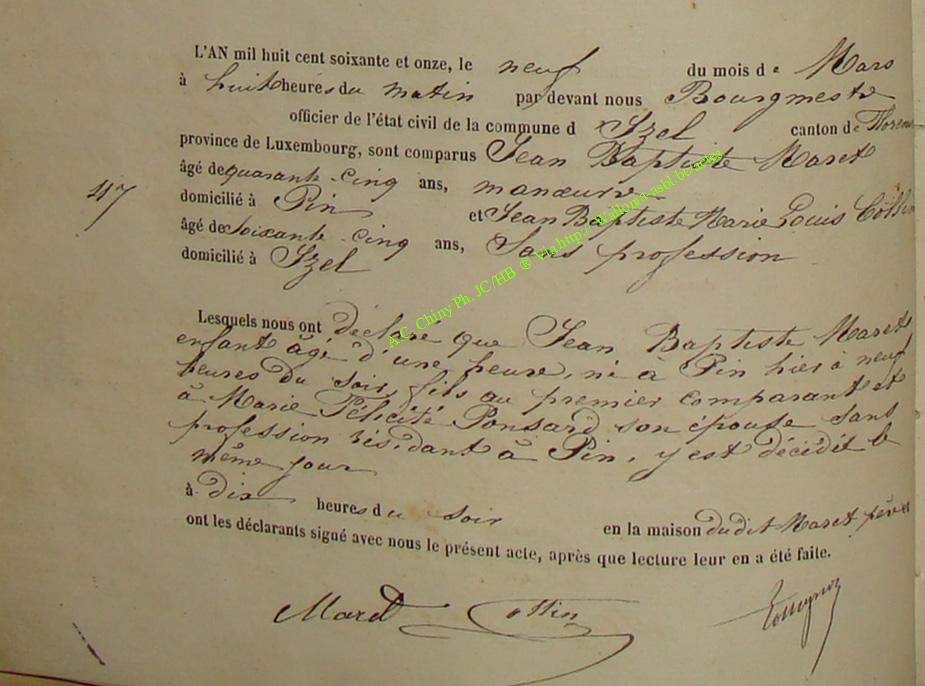 L'AN mil huit cent soixante et onze, le neuf du mois de Mars
à huit heures du matin par devant nous Bourgmestre
officier de l'état civil de la commune d Izel canton de Floren
province de Luxembourg, sont comparus Jean Baptiste Maret
âgé de quarante-cinq ans, manœuvre
47
domicilié à Pin et Jean Baptiste Marie Louis Collin
âgé de soixante-cinq ans, sans profession
domicilié à Izel
Lesquels nous ont déclaré que Jean Baptiste Maret
enfant âgé d'une heure, né à Pin hier à neuf
heures du soir, fils au premier comparant et
à Marie Félicité Ponsard son épouse sans
profession résidant à Pin, y est décédé le
même jour
à dix heures du soir en la maison du dit Maret père
ont les déclarants signé avec nous le présent acte, après que lecture leur en a été faite.
Maret Collin
A.C. Chiny Ph. JC/HB ® Via http://wallonia-asbl.be/actes